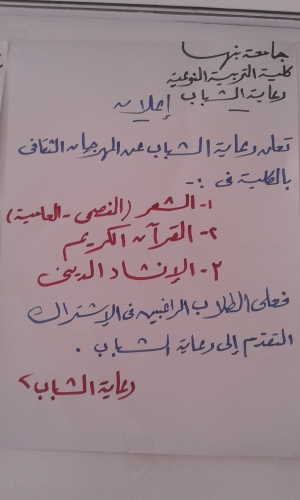 جامعة بنها
كلية التربية النوعية
رعاية الشباب
إعلان
تعلن رعاية الشباب عن المهرجان الثقافى
بالكلية فى :-
١- الشعر (الفصحى - العامية)
٢- القرآن الكريم
٣- الإنشاد الدينى
فعلى الطلاب الراغبين فى الإشتراك
التقدم إلى رعاية الشباب .
رعاية الشباب